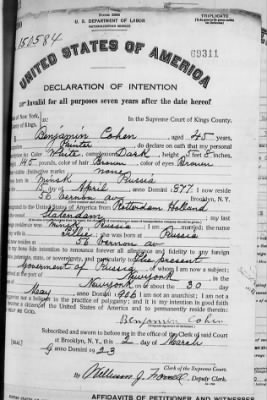 Form 2203
U. S. DEPARTMENT OF LABOR
NATURALIZATION SERVICE
TRIPLICATE
151584
No. 69311
UNITED STATES OF AMERICA
DECLARATION OF INTENTION
Invalid for all purposes seven years after the date hereof
of New York,
of Kings,
In the Supreme Court of Kings County.
Benjamin Cohen, aged 45 years,
Painter, do declare on oath that my personal
Color White, complexion Dark, height 5 feet 8 inches,
145 pounds, color of hair Brown, color of eyes Brown
visible distinctive marks none
Minsk Russia
15 day of April, anno Domini 1877; I now reside
56 Vernon av, Brooklyn, N.Y.
United States of America from Rotterdam Holland
Statendam; my last
residence was Minsk Russia; I am married; the name
she was born at Russia
56 Vernon av
is my bona fide intention to renounce forever all allegiance and fidelity to any foreign
state, or sovereignty, and particularly to The present
Government of Russia, of whom I am now a subject;
at the port of Newyork
Newyork, on or about the 30 day
May, anno Domini 1906; I am not an anarchist; I am not a
nor a believer in the practice of polygamy; and it is my intention in good faith
citizen of the United States of America and to permanently reside therein:
HELP ME GOD.
Benjamin Cohen
Subscribed and sworn to before me in the office of the Clerk of said Court
at Brooklyn, N.Y., this 2 day of March
anno Domini 1923
[SEAL]
Clerk of the Supreme Court.
By William J., Deputy Clerk.
AFFIDAVITS OF PETITIONER AND WITNESSES